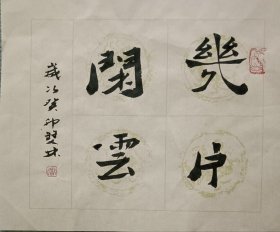 幾片
閒雲
歲次癸卯